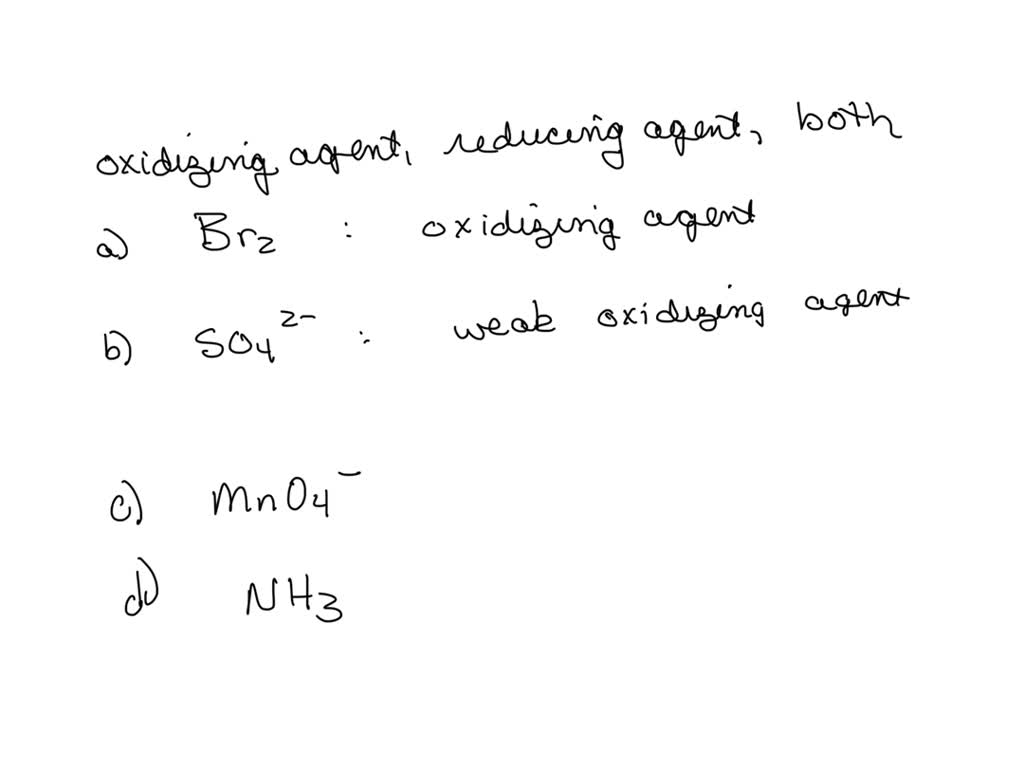 oxidizing agent, reducing agent, both
a) Br₂ : oxidizing agent
b) SO₄²⁻ : weak oxidizing agent
c) MnO₄⁻
d) NH₃